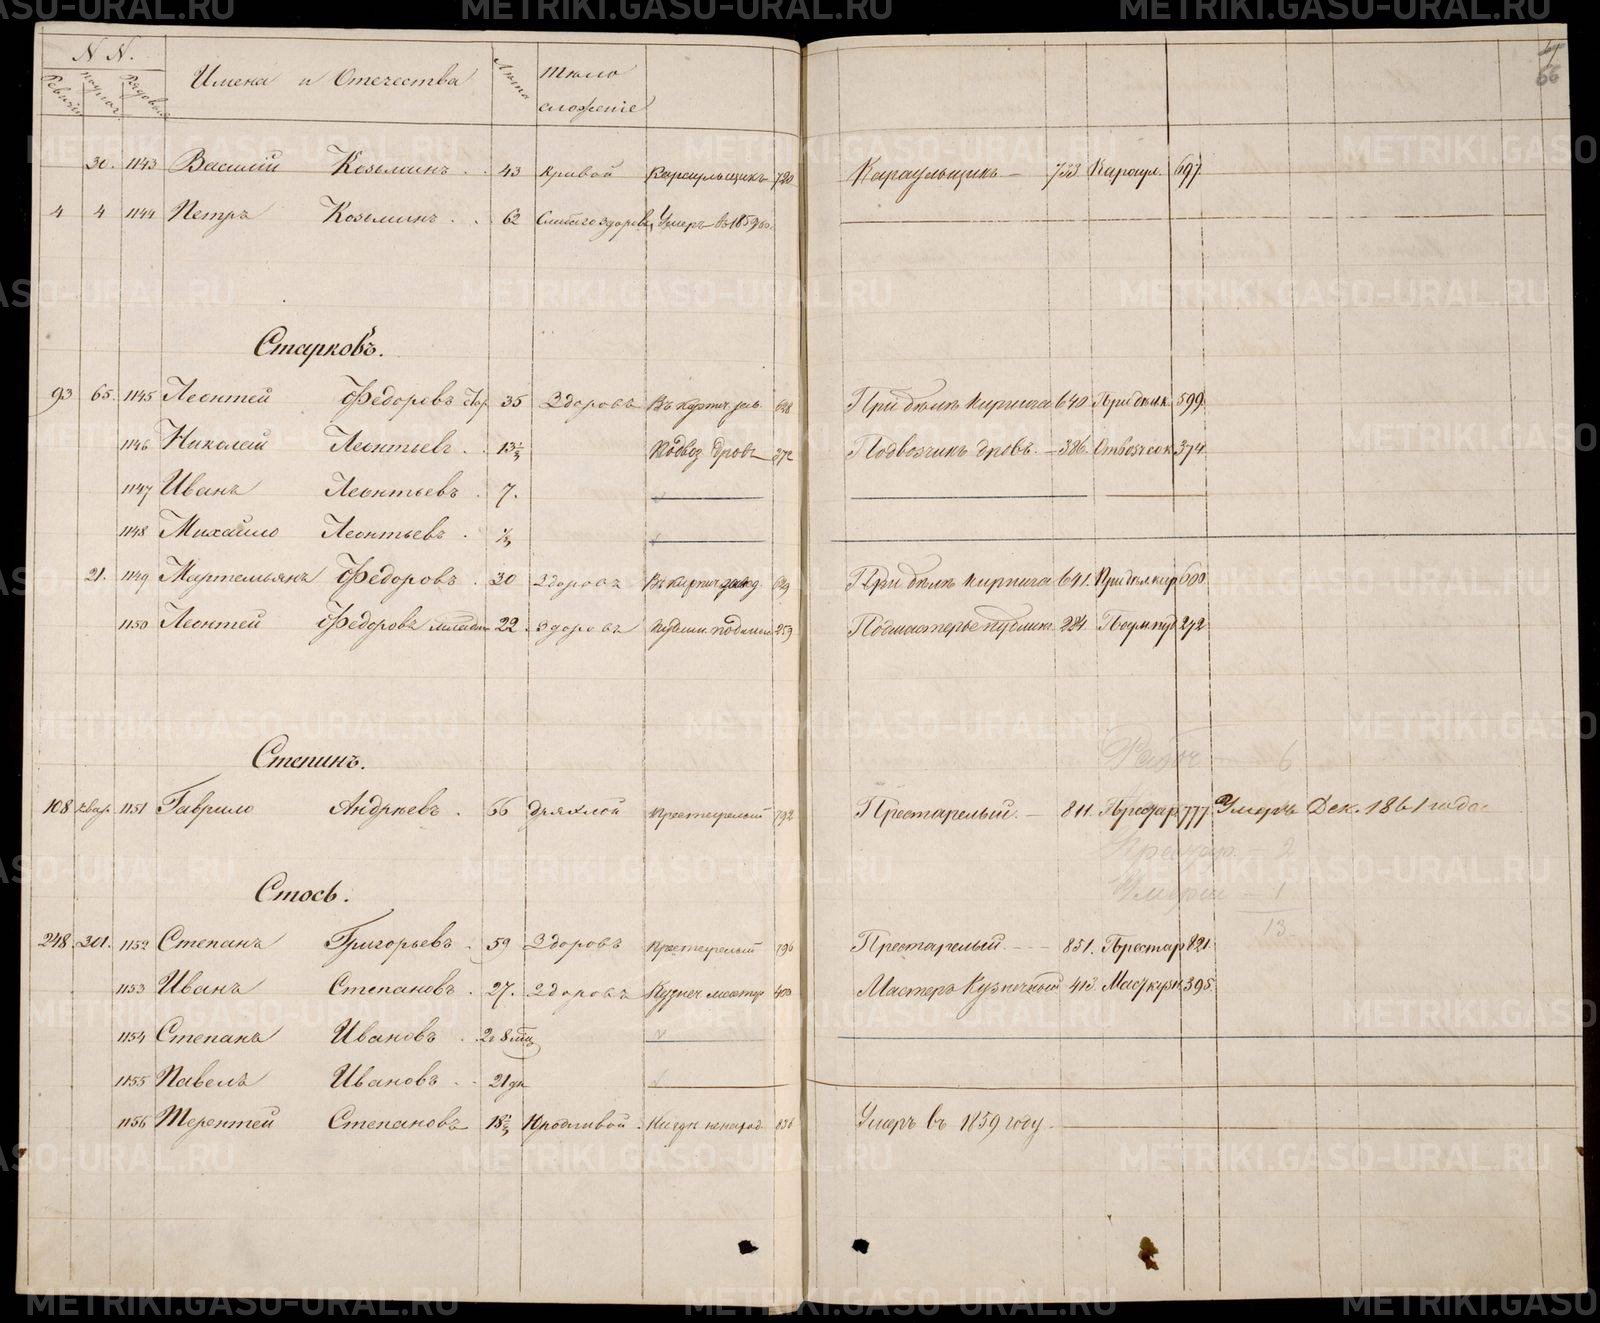 N N.
Ревизии
Рядовые
Имена и Отечества
Лѣта
тѣло
сложенiе
66
30. 1143 Василiй Козьминъ 43 кривой Караульщикъ 720 Караульщикъ 733 Караул. 697
4 4 1144 Петръ Козьминъ 62 Слабаго здоровья Умеръ въ 1859 го.
Старковъ.
93 65. 1145 Леонтей Ѳедоровъ Стар. 35 Здоровъ Въ кирпич. 628 При дѣлѣ кирпича 640 При дѣлѣ 599
1146 Николай Леонтьевъ 13½ Подвоз. дровъ 372 Подвозчикъ дровъ 386. 374
1147 Иванъ Леонтьевъ 7.
1148 Михайло Леонтьевъ ½
21. 1149 Мартемьянъ Ѳедоровъ 30 Здоровъ Въ кирпич. 629 При дѣлѣ кирпича 641. При дѣл. кир 600
1150 Леонтей Ѳедоровъ 22 Здоровъ 259 Подмастерье 224. 272
Степинъ.
Рабоч 6
108 1151 Гаврило Андреевъ 66 дряхлой Престарелый 792 Престарелый 811. Престар 777 Умеръ Дек. 1861 года
Престар. 2
Умерш 1
13
Стось.
248. 301. 1152 Степанъ Григорьевъ 59 Здоровъ Престарелый 796 Престарелый 851. Престар 821.
1153 Иванъ Степановъ 27. Здоровъ Кузнеч. мастер 400 Мастеръ Кузнечный 413. Маст. кузн. 395
1154 Степанъ Ивановъ 2 и 8 мѣц
1155 Павелъ Ивановъ 21 дн
1156 Терентей Степановъ 18½ Кродливой 836 Умеръ въ 1859 году.
METRIKI.GASO-URAL.RU